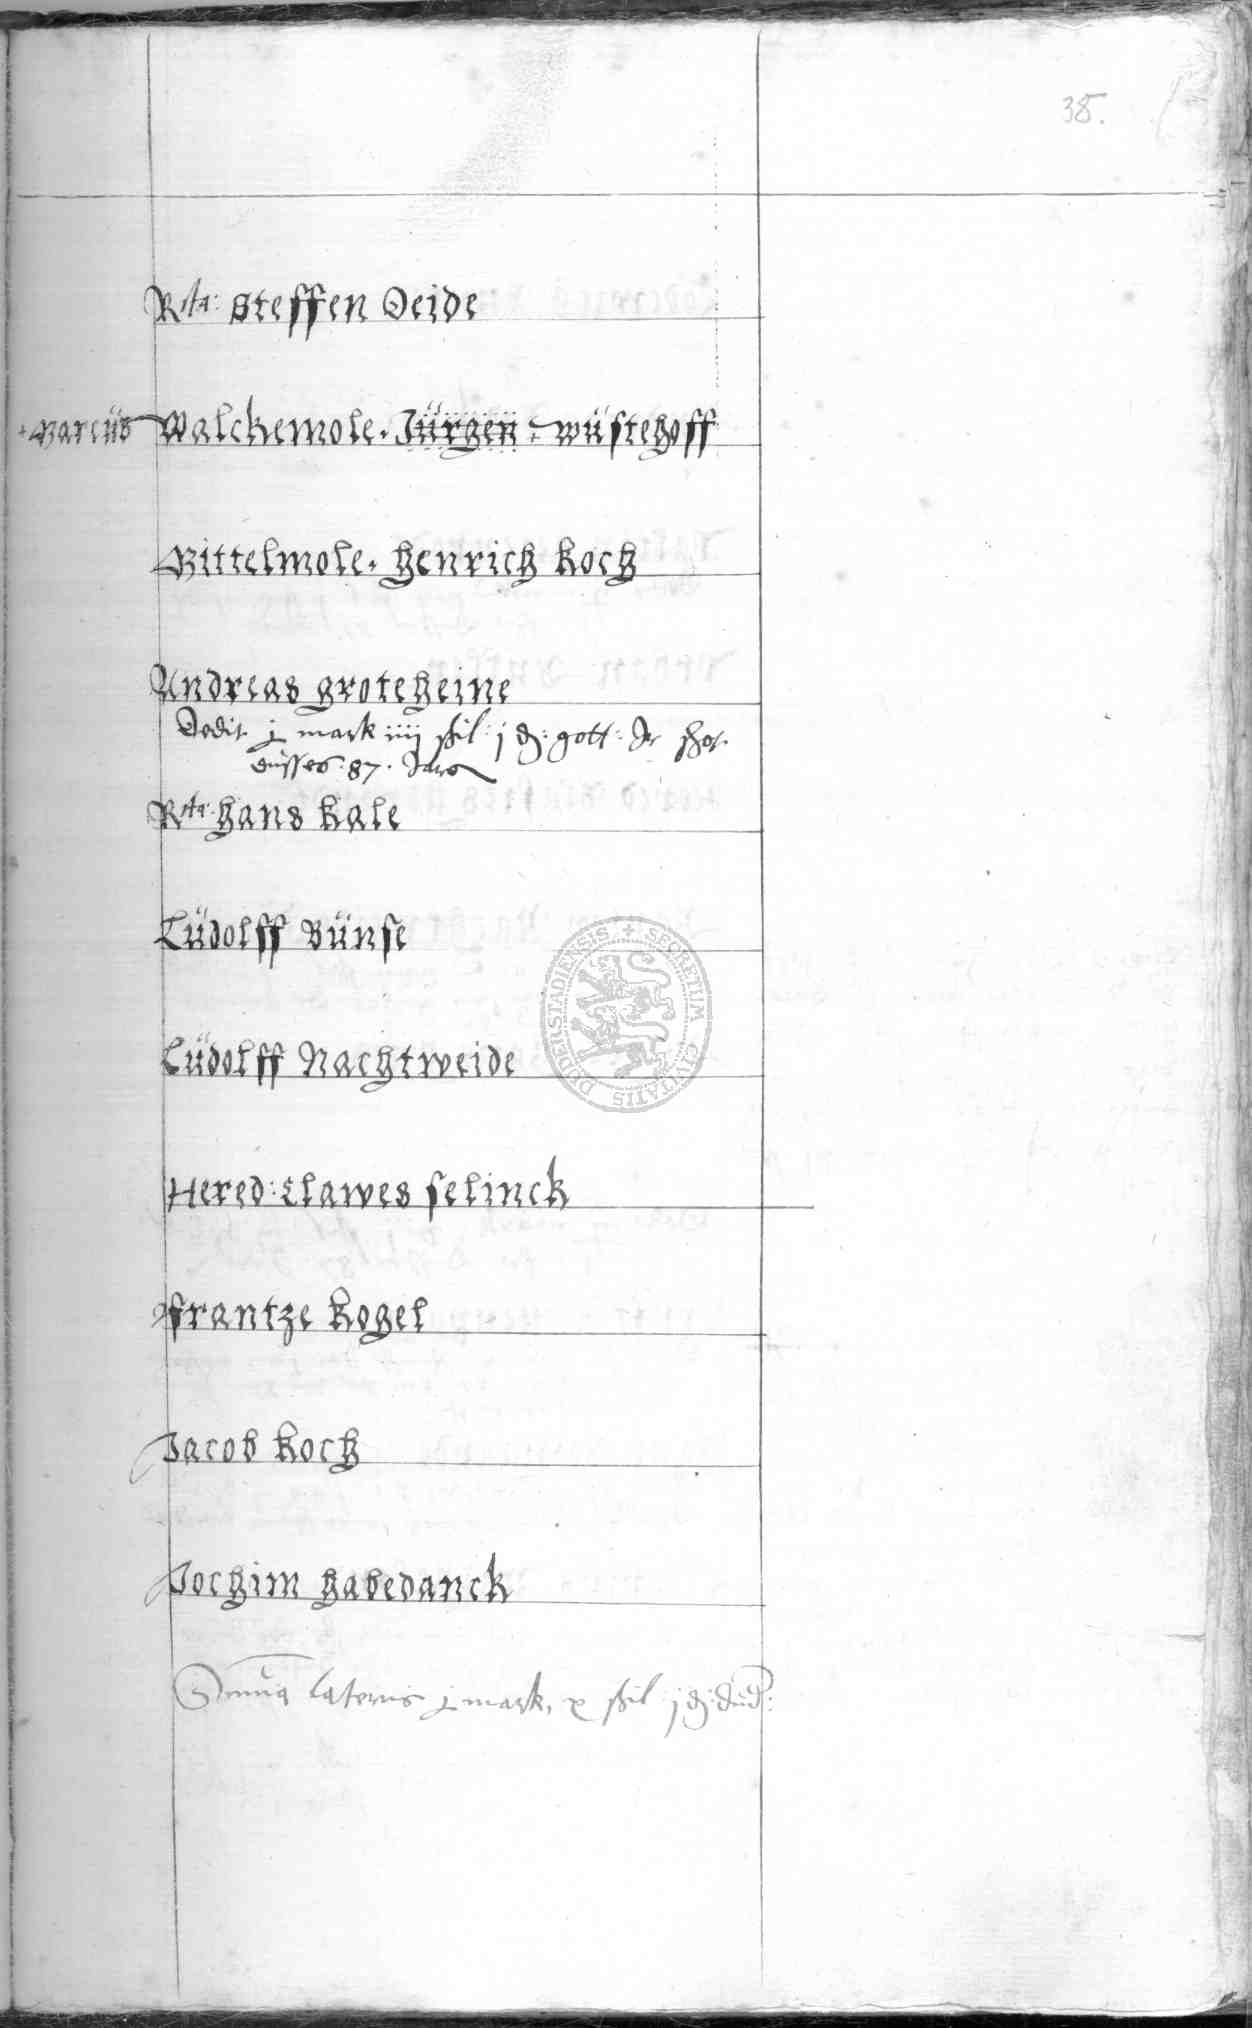 38.
Rta: Steffen Deide
Marcus Walckemole. Jürgen wüstehoff
Mittelmole. Henrich Koch
Andreas groteheine
Dedit j mark iiij ßil: j d: gott: Ir schot
düsses 87. Jars
Rta: Hans Kale
Lüdolff Bünse
Lüdolff Nachtweide
Hered: Clawes selinck
Frantze Kogel
Jacob Koch
Jochim Habedanck
Summa lateris j mark, x ßil j d: dud:
SECRETUM CIVITATIS DUDERSTADIENSIS